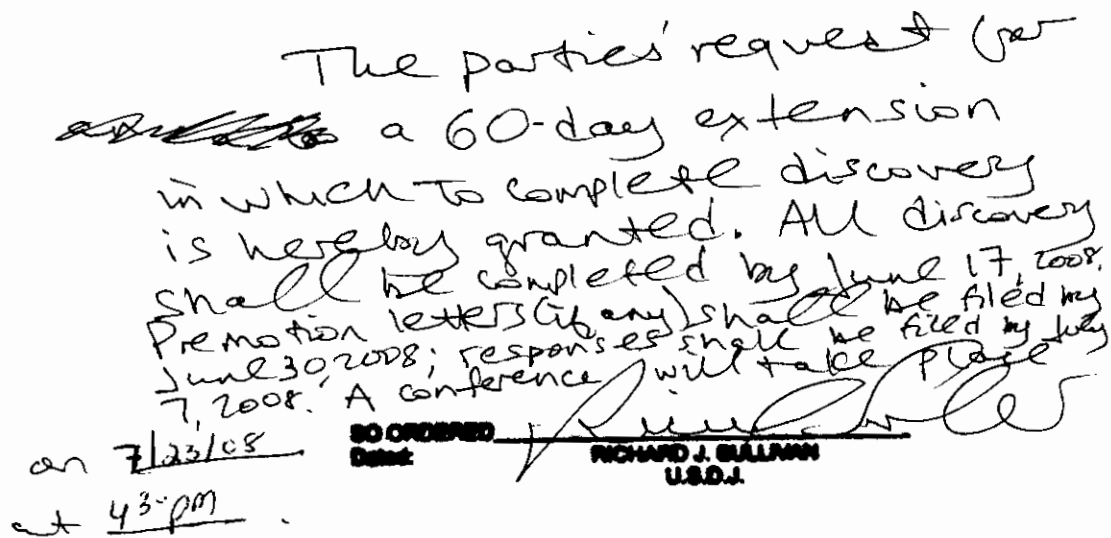 The parties' request for
a 60-day extension
in which to complete discovery
is hereby granted. All discovery
shall be completed by June 17, 2008.
Premotion letters (if any) shall be filed by
June 30 2008; responses shall be filed by July
7, 2008. A conference will take place
SO ORDERED
Dated:
RICHARD J. SULLIVAN
U.S.D.J.
on 7/23/08
at 4 30 pm.